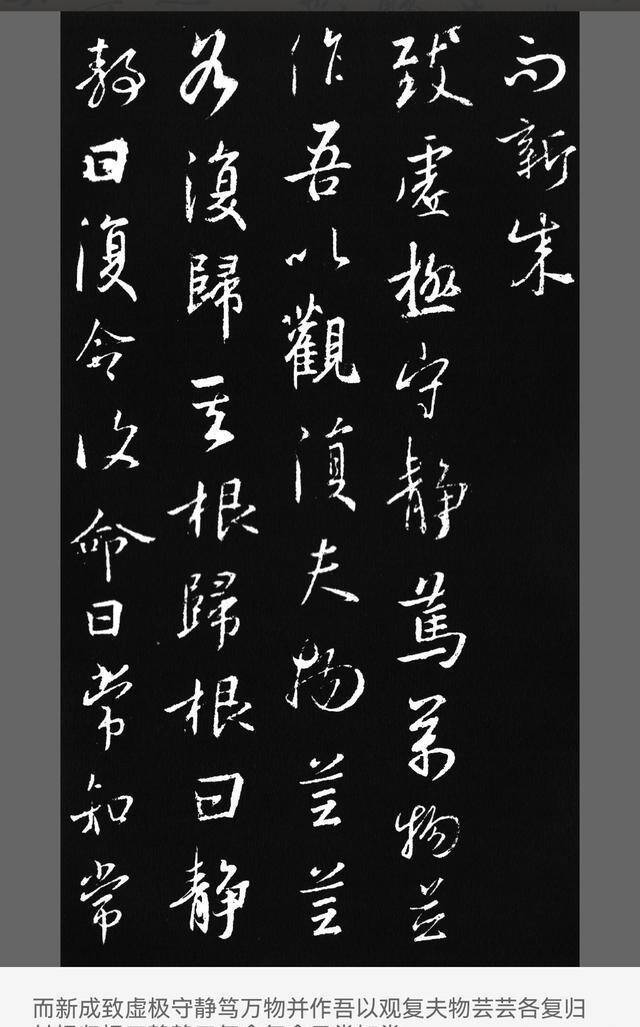 而新成
致虛極守靜篤萬物並
作吾以觀復夫物芸芸
各復歸其根歸根曰靜
靜曰復命復命曰常知常
而新成致虚极守静笃万物并作吾以观复夫物芸芸各复归